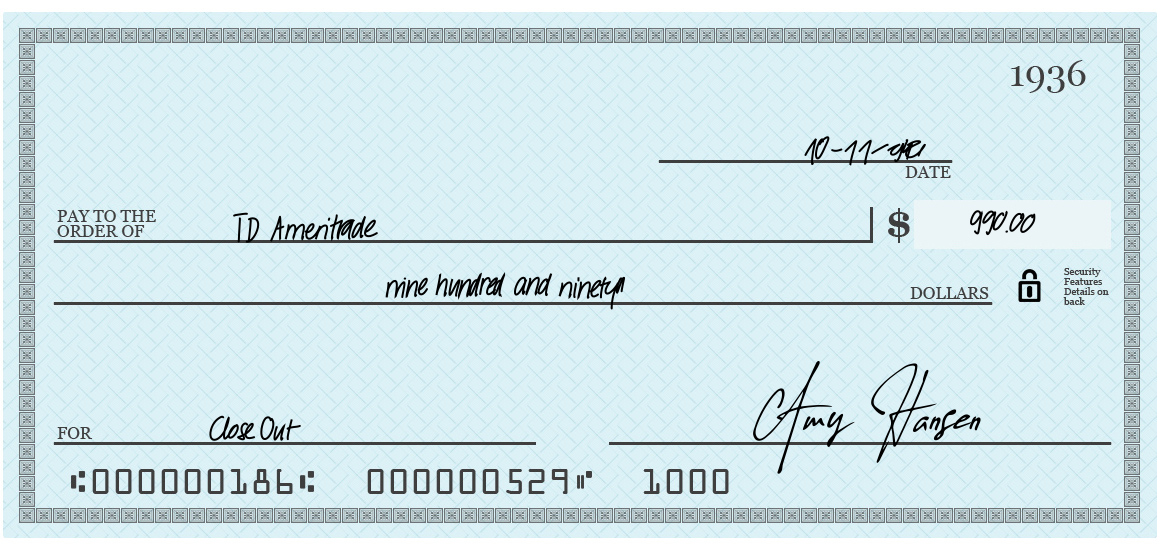 1936
10-11-
DATE
PAY TO THE
ORDER OF
TD Ameritrade
$ 990.00
nine hundred and ninety
DOLLARS
Security
Features
Details on
back
FOR Close Out
Amy Hansen
⑆000000186⑆ 000000529⑈ 1000